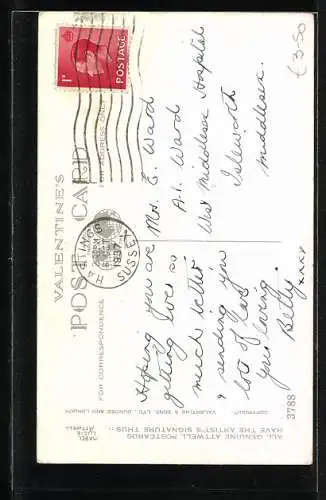 £3-50
1D
POSTAGE
VALENTINE'S
POST CARD
FOR CORRESPONDENCE
FOR ADDRESS ONLY
SUSSEX
1937
Hoping you are
getting lives so
much better
& sending you
lots of love
your loving
Betty
xxxx
Mrs. E. Ward
A.1. Ward
West Middlesex Hospital
Isleworth
Middlesex.
MABEL
LUCIE
ATTWELL
ALL GENUINE ATTWELL POSTCARDS
HAVE THE ARTIST'S SIGNATURE THUS:-
COPYRIGHT. VALENTINE & SONS, LTD., DUNDEE AND LONDON
3788